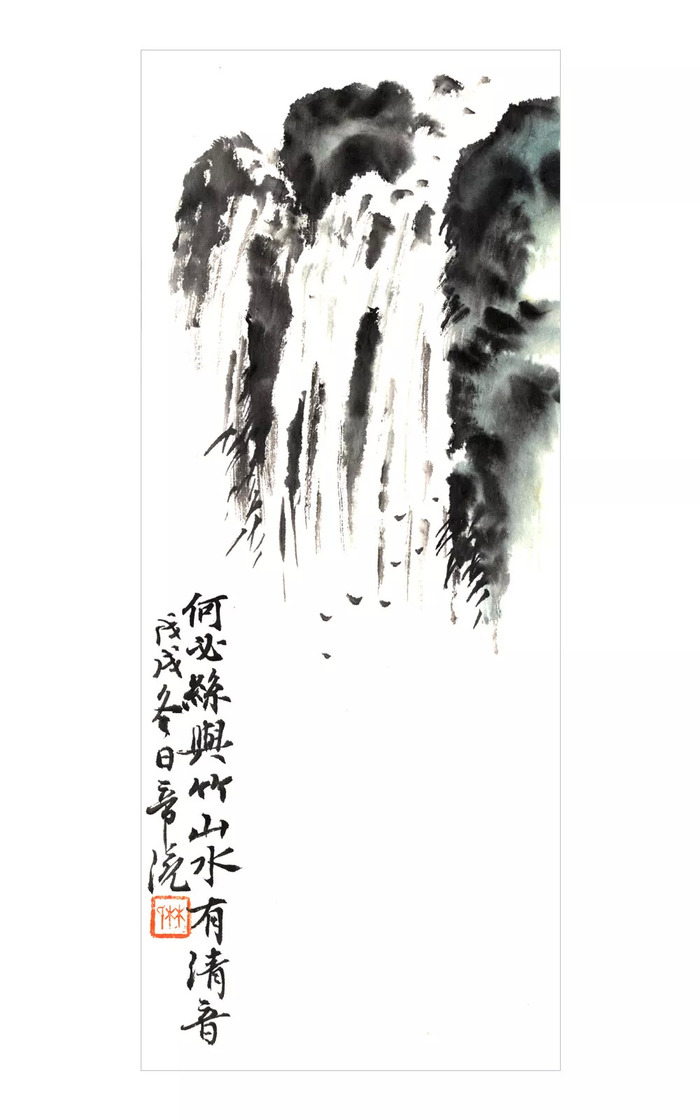 何必絲與竹山水有清音
戊戌冬日